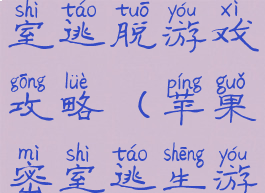 shì táo tuō yóu xì
室逃脱游戏
gōng lüè píng guǒ
攻略（苹果
mì shì táo shēng yóu
密室逃生游